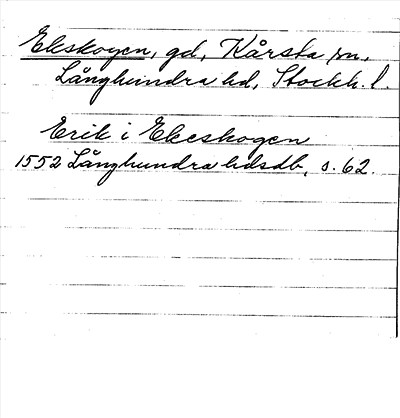 Ekskogen, gd, Kårsta sn,
Långhundra hd, Stockh. l.
Erik i Ekeskogen
1552 Långhundra hdsdb, s. 62.